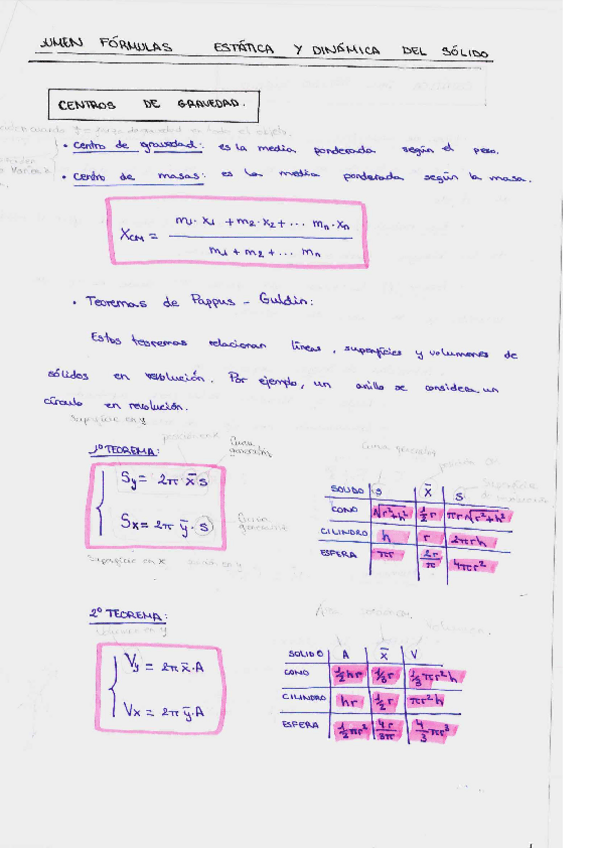 UMEN FÓRMULAS ESTÁTICA Y DINÁMICA DEL SÓLIDO
CENTROS DE GRAVEDAD.
• Centro de gravedad: es la media ponderada según el peso.
• Centro de masas: es la media ponderada según la masa.
XCM = m1·x1 + m2·x2 + ... mn·xn / m1 + m2 + ... mn
• Teoremas de Pappus - Guldin:
Estos teoremas relacionan líneas, superficies y volúmenes de
sólidos en revolución. Por ejemplo, un anillo se considera un
círculo en revolución.
Superficie en y
1º TEOREMA:
Sy = 2π x̄ s
Sx = 2π ȳ · s
Superficie en x
SOLIDO s x̄ S
CONO √r²+h² 1/2 r πr√r²+h²
CILINDRO h r 2πrh
ESFERA πr 2r/π 4πr²
2º TEOREMA:
Vy = 2π x̄·A
Vx = 2π ȳ·A
SOLIDO A x̄ V
CONO 1/2 hr 1/3 r 1/3 πr²h
CILINDRO hr 1/2 r πr²h
ESFERA 1/2 πr² 4r/3π 4/3 πr³